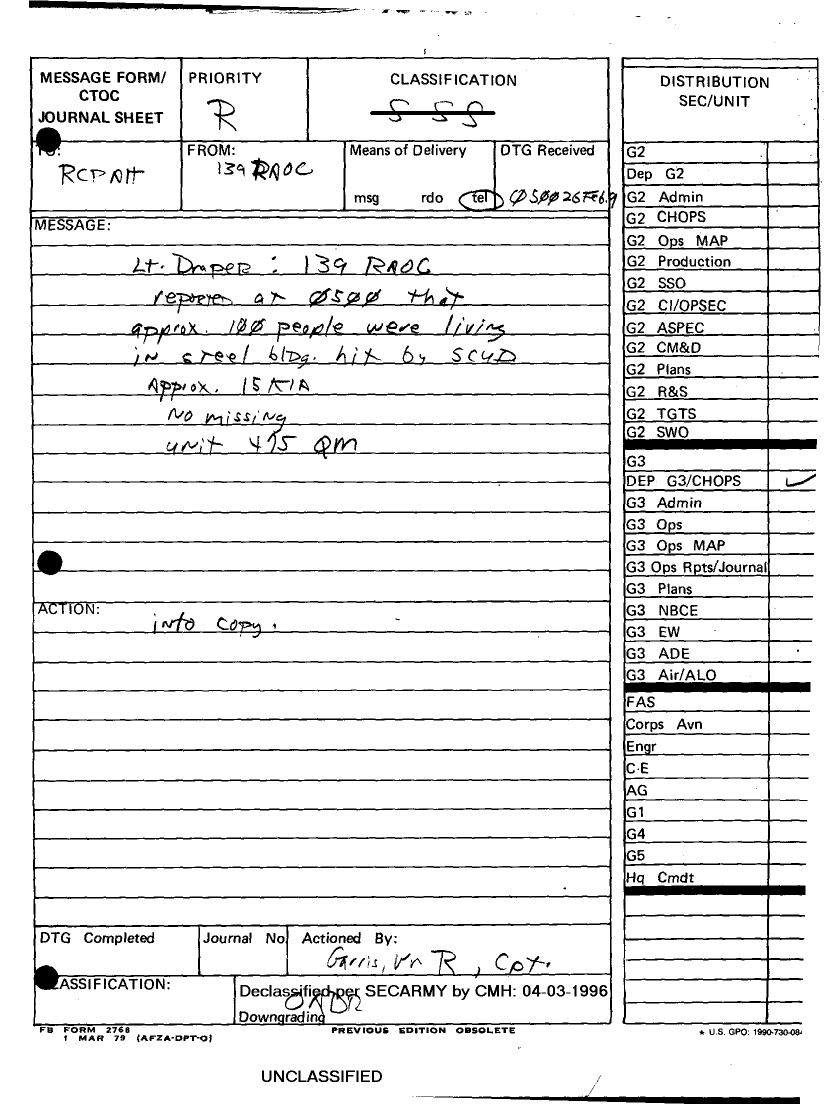 MESSAGE FORM/
CTOC
JOURNAL SHEET
PRIORITY
R
CLASSIFICATION
S S S
TO:
FROM:
139 RAOC
Means of Delivery
msg rdo tel
DTG Received
MESSAGE:
Lt. Draper: 139 RAOC
reported at 0500 that
approx. 100 people were living
in steel bldg. hit by SCUD
Approx. 15 KIA
No missing
unit 475 QM
ACTION:
info copy.
DTG Completed
Journal No
Actioned By:
Garris, R, Cpt.
CLASSIFICATION:
Declassified per SECARMY by CMH: 04-03-1996
OADR
Downgrading
FB FORM 2768
1 MAR 79 (AFZA-DPT-O)
PREVIOUS EDITION OBSOLETE
DISTRIBUTION
SEC/UNIT
G2
Dep G2
G2 Admin
G2 CHOPS
G2 Ops MAP
G2 Production
G2 SSO
G2 CI/OPSEC
G2 ASPEC
G2 CM&D
G2 Plans
G2 R&S
G2 TGTS
G2 SWO
G3
DEP G3/CHOPS
G3 Admin
G3 Ops
G3 Ops MAP
G3 Ops Rpts/Journal
G3 Plans
G3 NBCE
G3 EW
G3 ADE
G3 Air/ALO
FAS
Corps Avn
Engr
C-E
AG
G1
G4
G5
Hq Cmdt
* U.S. GPO: 1990-730-08
UNCLASSIFIED